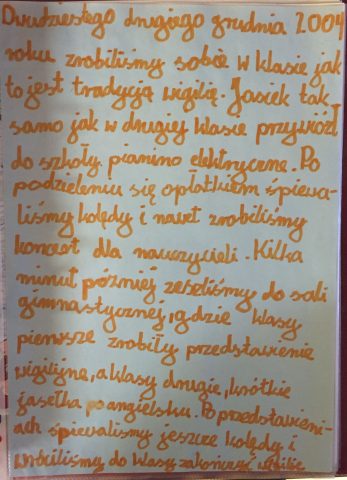 Dwudziestego drugiego grudnia 2004
roku zrobiliśmy sobie w klasie jak
to jest tradycją wigilię. Jasiek tak
samo jak w drugiej klasie przywiózł
do szkoły pianino elektryczne. Po
podzieleniu się opłatkiem śpiewa-
liśmy kolędy i nawet zrobiliśmy
koncert dla nauczycieli. Kilka
minut później zeszliśmy do sali
gimnastycznej, gdzie klasy
pierwsze zrobiły przedstawienie
wigilijne, a klasy drugie, krótkie
jasełka po angielsku. Po przedstawieni-
ach śpiewaliśmy jeszcze kolędy i
wróciliśmy do klasy zakończyć wigilię.